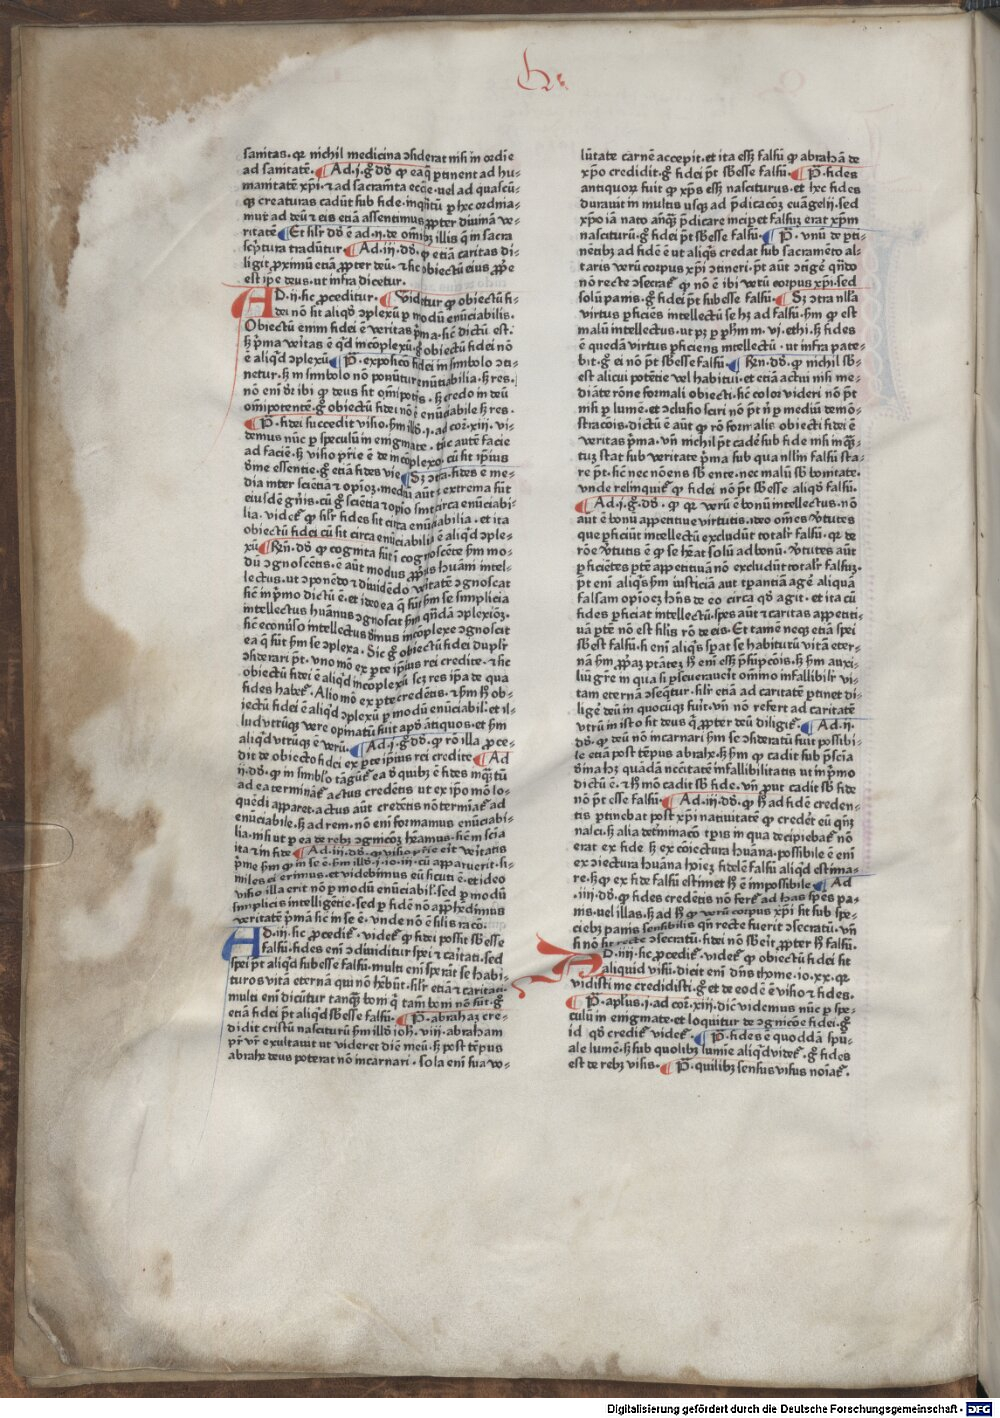 sanitas. qr nichil medicina ↄsiderat nisi in ordīe
ad sanitatē. Ad .i. g̊ dō̄ ꝙ eaq̄ ꝑtinent ad hu-
manitatē xp̄i ⁊ ad sacram̄ta ecc̄e vel ad quascū-
qꝫ creaturas cadūt sub fide inq̄ntū ꝑ hec ordina-
mur ad deū ⁊ eis etiā assentimus ꝓpter diuinā ve-
ritatē Et silr dō̄ ē ad .ii. de om̄ibꝫ illis q̄ in sacra
scp̄tura tradūtur Ad .iii. dō̄. ꝙ etiā caritas di-
ligit ꝓximū etiā ꝓpter deū. ⁊ sic obiectū eius ꝓp̄e
est ip̄e deus. ut infra dicetur.
AD .ii. sic ꝓceditur. Videtur ꝙ obiectū fi-
dei nō sit aliqd̄ ↄplexū ꝑ modū enūciabilis.
Obiectū enim fidei ē veritas p̄ma. sic̄ dictū est.
sꝫ p̄ma veritas ē qd̄ incoplexū. g̊ obiectū fidei nō
ē aliqd̄ ↄplexū P̄. expositio fidei in simbolo ↄti-
netur. sꝫ in simbolo nō ponūtur enūtiabilia. sꝫ res.
nō enī dr̄ ibi ꝙ deus sit om̄ipotēs. sꝫ credo in deū
om̄ipotentē. g̊ obiectū fidei nō ē enūciabile sꝫ res.
P̄. fidei succedit visio. s̄m illd̄ .i. ad cor. xiii. vi-
demus nūc ꝑ speculū in enigmate. tūc autē facie
ad faciē. sꝫ visio pr̄ie ē de incoplexo. cū sit ip̄ius
dīne essentie. g̊ etiā fides vie Sꝫ ↄtra. fides ē me-
dia inter sciētiā ⁊ opioꝫ. mediū aūt ⁊ extrema sūt
eiusdē gn̄is. cū g̊ sciētia ⁊ opio sint circa enūciabi-
lia. videt̄ ꝙ silr fides sit circa enūciabilia. et ita
obiectū fidei cū sit circa enūciabilia ē aliqd̄ ↄple-
xū Rn̄. dō̄ ꝙ cognita sūt ī cognoscēte s̄m mo-
dū ↄgnoscētis. ē aūt modus ꝓp̄us hūani intel-
lectus. ut ↄponēdo ⁊ diuidēdo v̄itatē ↄgnoscat
sic̄ in p̄mo dictū ē. et ideo ea q̄ sūt s̄m se simplicia
intellectus hūanus ↄgnoscit s̄m qn̄dā ↄplexioꝫ.
sic̄ econūso intellectus dīnus incoplexe ↄgnoscit
ea q̄ sūt s̄m se ↄplexa. Sic g̊ obiectū fidei duplr
ↄsiderari pt̄. vno mō ex ꝑte ip̄ius rei credite. ⁊ sic
obiectū fidei ē aliqd̄ incoplexū scꝫ res ip̄a de qua
fides habet̄. Alio mō ex ꝑte credētis. ⁊ s̄m hꝫ ob-
iectū fidei ē aliqd̄ ↄplexū ꝑ modū enūciabil̄. et il-
lud vtrūqꝫ vere opinatū fuit apd̄ antiquos. et s̄m
aliqd̄ vtrūqꝫ ē verū. Ad .i. g̊ dō̄. ꝙ rō illa ꝓce-
dit de obiecto fidei ex ꝑte ip̄ius rei credite Ad
.ii. dō̄. ꝙ in simbol̄o tāgūt̄ ea d̄ quibꝫ ē fides inq̄ntū
ad ea terminat̄ actus credētis ut ex ipo mō lo-
quēdi apparet. actus aūt credētis nō termīat̄ ad
enūciabile. sꝫ ad rem. nō enī formamus enūciabi-
lia. nisi ut ꝑ ea de rebꝫ ↄgnicoꝫ h̄eamus. sic̄ in scīa
ita ⁊ in fide Ad .iii. dō̄. ꝙ visio pr̄ie erit v̄itatis
p̄me s̄m ꝙ in se ē. s̄m illd̄ .i. io. iii. cū apparuerit. si-
miles ei erimus. et videbimus eū sicuti ē. et ideo
visio illa erit nō ꝑ modū enūciabil̄. sed ꝑ modū
simplicis intelligētie. sed ꝑ fidē nō app̄hēdimus
veritatē p̄mā sic̄ in se ē. vnde nō ē sīlis racō.
AD .iii. sic ꝓcedit̄. videt̄ ꝙ fidei possit sb̄esse
falsū. fides enī ↄdiuiditur spei ⁊ caītati. sed
spei pt̄ aliqd̄ subesse falsū. multi enī sperāt se habi-
turos vitā eternā qui nō hēbūt. silr etiā ⁊ caritati.
multi enī dicūtur tanqꝫ boni q̄ tam̄ boni nō sūt. g̊
etiā fidei pt̄ aliqd̄ sb̄esse falsū. P̄. abrahaꝫ cre-
didit cristū nasciturū s̄m illd̄ ioh. viii. abraham
pr̄ vr̄ exultauit ut videret diē meū. sꝫ post tēpus
abrahe deus poterat nō incarnari. sola enī sua vo-
lūtate carnē accepit. et ita essꝫ falsū ꝙ abrahā de
xp̄o credidit. g̊ fidei pt̄ sb̄esse falsū. P̄. fides
antiquoꝝ fuit ꝙ xp̄s essꝫ nasciturus. et hec fides
durauit in multis usqꝫ ad p̄dicacōꝫ euāgelij. sed
xp̄o iā nato anqꝫ p̄dicare inciperet falsuꝫ erat xp̄m
nasciturū. g̊ fidei pt̄ sb̄esse falsū. P̄. vnū de ꝑti-
nētibꝫ ad fidē ē ut aliqs̄ credat sub sacramēto al-
taris verū corpus xp̄i ↄtineri. pt̄ aūt ↄtīgē qn̄do
nō recte ↄsecrat̄ ꝙ nō ē ibi verū corpus xp̄i. sed
solū panis. g̊ fidei pt̄ subesse falsū. Sꝫ ↄtra nlla
virtus ꝑficiēs intellectū se hꝫ ad falsū. s̄m ꝙ est
malū intellectus. ut pꝫ ꝑ ph̄m in .vi. ethi. sꝫ fides
ē quedā virtus ꝑficiens intellectū. ut infra pate-
bit. g̊ ei nō pt̄ sb̄esse falsū. Rn̄. dō̄. ꝙ nichil sb̄-
est alicui potētie vel habitui. et etiā actui nisi me-
diāte rōne formali obiecti. sic̄ color videri nō pt̄
nisi ꝑ lumē. et ↄclusio sciri nō pt̄ nī ꝑ mediū demō-
stracōis. dictū ē aūt ꝙ rō formalis obiecti fidei ē
veritas p̄ma. vn̄ nichil pt̄ cadē sub fide nisi inqꝫ-
tuꝫ stat sub veritate p̄ma sub qua nllm falsū sta-
re pt̄. sic̄ nec nōens sb̄ ente. nec malū sb̄ bonitate.
vnde relinquit̄ ꝙ fidei nō pt̄ sb̄esse aliqd̄ falsū.
Ad .i. g̊. dō̄. ꝙ qr verū ē bonū intellectus. nō
aūt ē bonū appetitiue virtutis. ideo om̄es v̄tutes
que ꝑficiūt intellectū excludūt totalr̄ falsū. qr de
rōe v̄tutis ē ꝙ se h̄eāt solū ad bonū. v̄tutes aūt
ꝑficiētes ꝑtē appetitiuā nō excludūt totalr̄ falsuꝫ.
pt̄ enī aliqs̄ s̄m iusticiā aut tꝑantiā agē aliquā
falsam opioēꝫ hn̄s de eo circa qd̄ agit. et ita cū
fides ꝑficiat intellectū. spes aūt ⁊ caritas appetiti-
uā ꝑtē nō est sīlis rō de eis. Et tamē neqꝫ etiā spei
sb̄est falsū. si enī aliqs̄ sꝑat se habiturū vitā eter-
nā s̄m ꝓp̄aꝫ ptātēꝫ hꝫ enī essꝫ p̄sūpcōis. sꝫ s̄m auxi-
liū gr̄e in qua si ꝑseuerauēit om̄ino infallibilr̄ vi-
tam eternā ↄseqt̄ur. silr̄ etiā ad caritatē ꝑtinet di-
ligē deū in quocūqꝫ fuit. vn̄ nō refert ad caritatē
vtrū in isto sit deus q̄ ꝓpter deū diligit̄. Ad .ii.
dō̄. ꝙ deū nō incarnari s̄m se ↄsideratū fuit possibi-
le etiā post tēpus abrahe. sꝫ s̄m ꝙ cadit sub p̄sciā
dīna hꝫ quādā necc̄itatē infallibilitatis ut in p̄mo
dictū ē. ⁊ hꝫ mō cadit sb̄ fide. vn̄ ꝓut cadit sb̄ fide
nō pt̄ esse falsū. Ad .iii. dō̄. ꝙ hꝫ ad fidē creden-
tis ꝑtinebat post xp̄i natiuitatē ꝙ credēt eū qn̄qꝫ
nasci. sꝫ alia det̄minacō tp̄is in qua decipiebat̄ nō
erat ex fide. sꝫ ex cōiectura hūana. possibile ē enī
ex ↄiectura hūana hoīeꝫ fidelē falsū aliqd̄ estima-
re. sꝫ ꝙ ex fide falsū estimet hꝫ ē impossibile Ad
.iiii. dō̄. ꝙ fides credētis nō fert̄ ad has spēs pa-
nis. uel illas. sꝫ ad hꝫ ꝙ verū corpus xp̄i sit sub spe-
ciebꝫ panis sensibilis qn̄ recte fuerit ↄsecratū. vn̄
si nō sit recte ↄsecratū. fidei nō sb̄eit ꝓpter hꝫ falsū.
AD .iiii. sic ꝓcedit̄. videt̄ ꝙ obiectū fidei sit
aliquid visū. dicit enī dn̄s thome. io. xx. qr
vidisti me credidisti. g̊ et de eodē ē visio ⁊ fides.
P̄. aplus .i. ad cor. xiii. dic̄ videmus nūc ꝑ spe-
culū in enigmate. et loquitur de ↄgnicōe fidei. g̊
id qd̄ credit̄ videt̄. P̄. fides ē quoddā spū-
ale lumē. sꝫ sub quolibꝫ lumīe aliqd̄ videt̄. g̊ fides
est de rebꝫ visis. P̄. quilibꝫ sensus visus noiat̄.
Digitalisierung gefördert durch die Deutsche Forschungsgemeinschaft - DFG